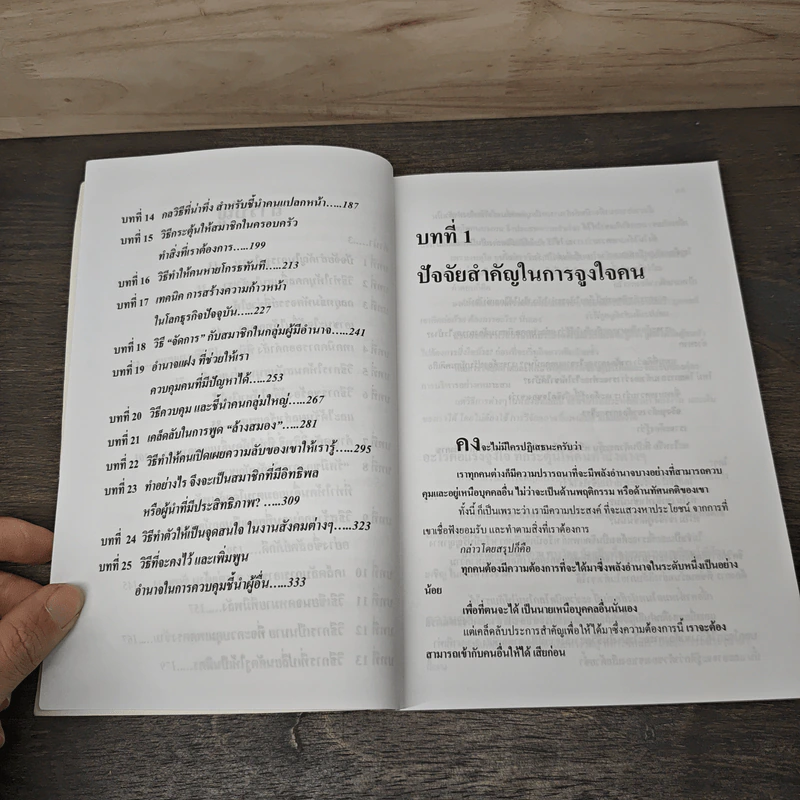 บทที่ 14 กลวิธีที่น่าทึ่ง สำหรับชี้นำคนแปลกหน้า.....187
บทที่ 15 วิธีกระตุ้นให้สมาชิกในครอบครัว
ทำสิ่งที่เราต้องการ.....199
บทที่ 16 วิธีทำให้คนหายโกรธทันที.....213
บทที่ 17 เทคนิค การสร้างความก้าวหน้า
ในโลกธุรกิจปัจจุบัน.....227
บทที่ 18 วิธี “จัดการ” กับสมาชิกในกลุ่มผู้มีอำนาจ.....241
บทที่ 19 อำนาจแฝง ที่ช่วยให้เรา
ควบคุมคนที่มีปัญหาได้.....253
บทที่ 20 วิธีควบคุม และชี้นำคนกลุ่มใหญ่.....267
บทที่ 21 เคล็ดลับในการพูด “ล้างสมอง”.....281
บทที่ 22 วิธีทำให้คนเปิดเผยความลับของเขาให้เรารู้.....295
บทที่ 23 ทำอย่างไร จึงจะเป็นสมาชิกที่มีอิทธิพล
หรือผู้นำที่มีประสิทธิภาพ? .....309
บทที่ 24 วิธีทำตัวให้เป็นจุดสนใจ ในงานสังคมต่างๆ.....323
บทที่ 25 วิธีที่จะคงไว้ และเพิ่มพูน
อำนาจในการควบคุมชี้นำผู้อื่น.....333
บทที่ 1
ปัจจัยสำคัญในการจูงใจคน
คงจะไม่มีใครปฏิเสธนะครับว่า
เราทุกคนต่างก็มีความปรารถนาที่จะมีพลังอำนาจบางอย่างที่สามารถควบ
คุมและอยู่เหนือบุคคลอื่น ไม่ว่าจะเป็นด้านพฤติกรรม หรือด้านทัศนคติของเขา
ทั้งนี้ ก็เป็นเพราะว่า เรามีความประสงค์ ที่จะแสวงหาประโยชน์ จากการที่
เขาเชื่อฟังยอมรับ และทำตามสิ่งที่เราต้องการ
กล่าวโดยสรุปก็คือ
ทุกคนต้องมีความต้องการที่จะได้มาซึ่งพลังอำนาจในระดับหนึ่งเป็นอย่าง
น้อย
เพื่อที่ตนจะได้ เป็นนายเหนือบุคคลอื่นนั่นเอง
แต่เคล็ดลับประการสำคัญเพื่อให้ได้มาซึ่งความต้องการนี้ เราจะต้อง
สามารถเข้ากับคนอื่นให้ได้ เสียก่อน